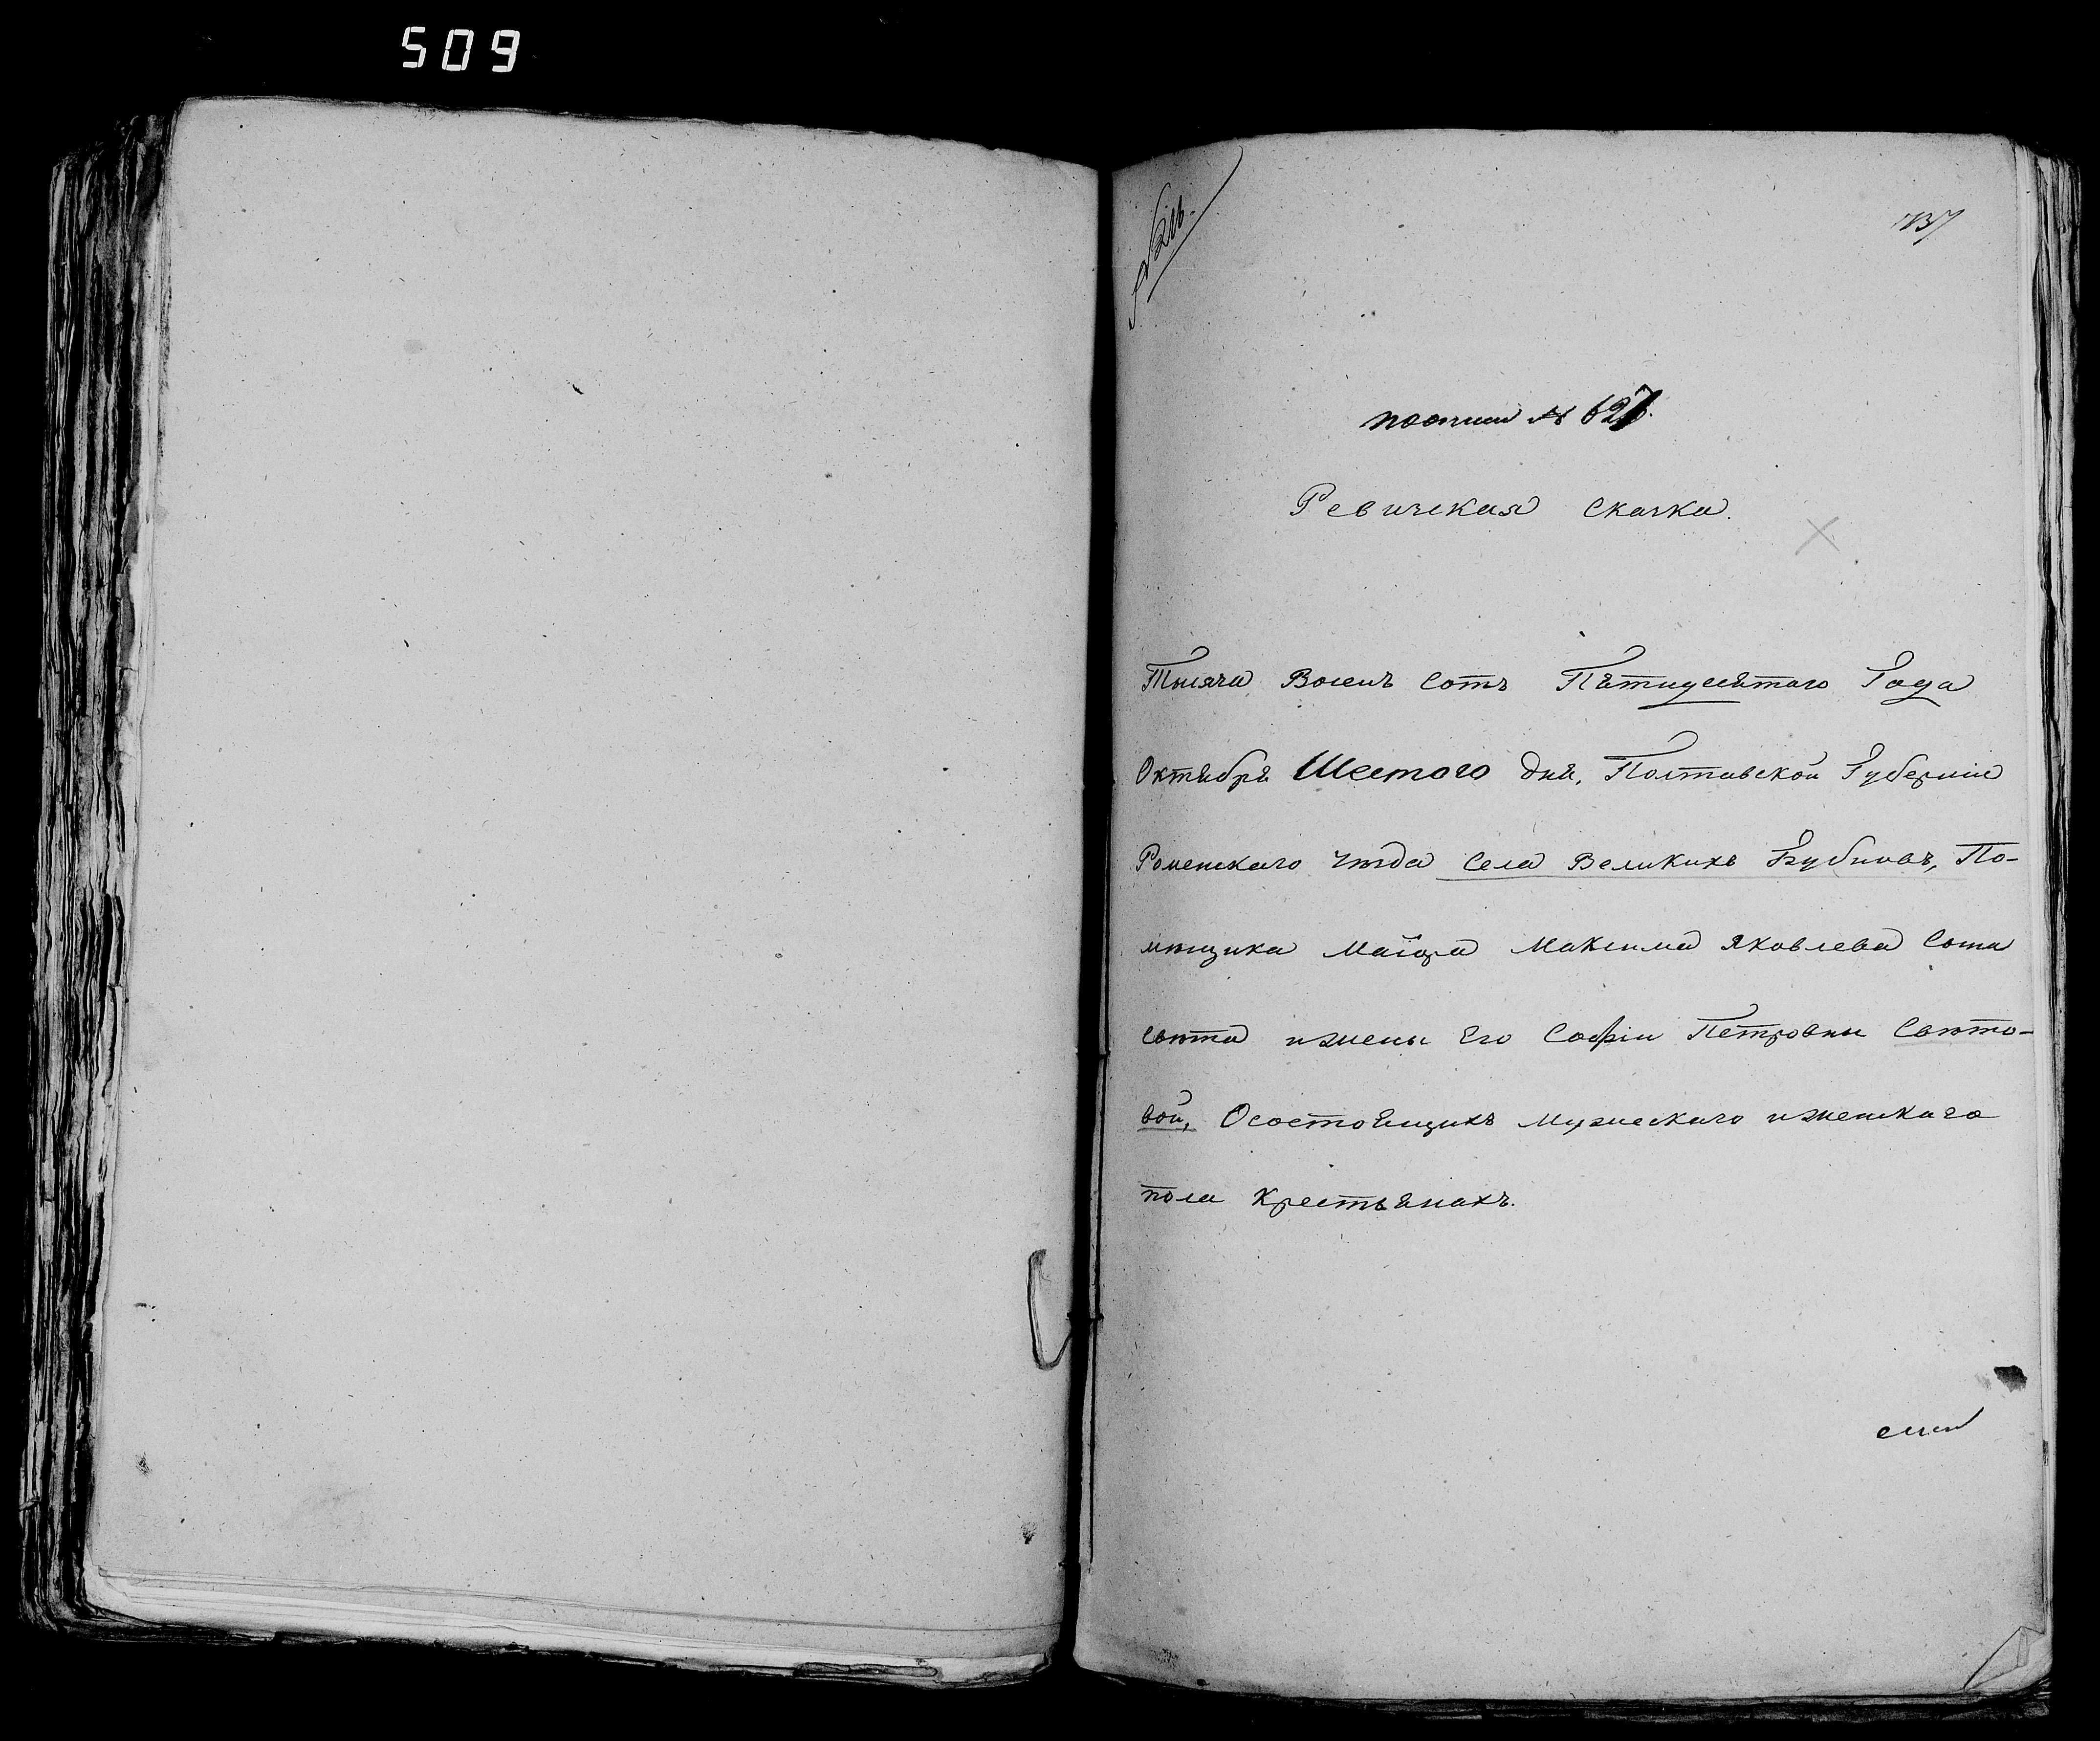 509
737
по описи № 627.
Ревизская Сказка.
Тысяча Восемь Сотъ Пятидесятого Года
Октября Шестого дня, Полтавской Губернии
Роменскаго уезда Села Великихъ Бубновъ, По-
мещика Маіора Максима Яковлева Сына
Свѣта и жены Его Софіи Петровны Свѣто-
вой, О состоящихъ мужескаго и женскаго
пола Крестьянахъ.